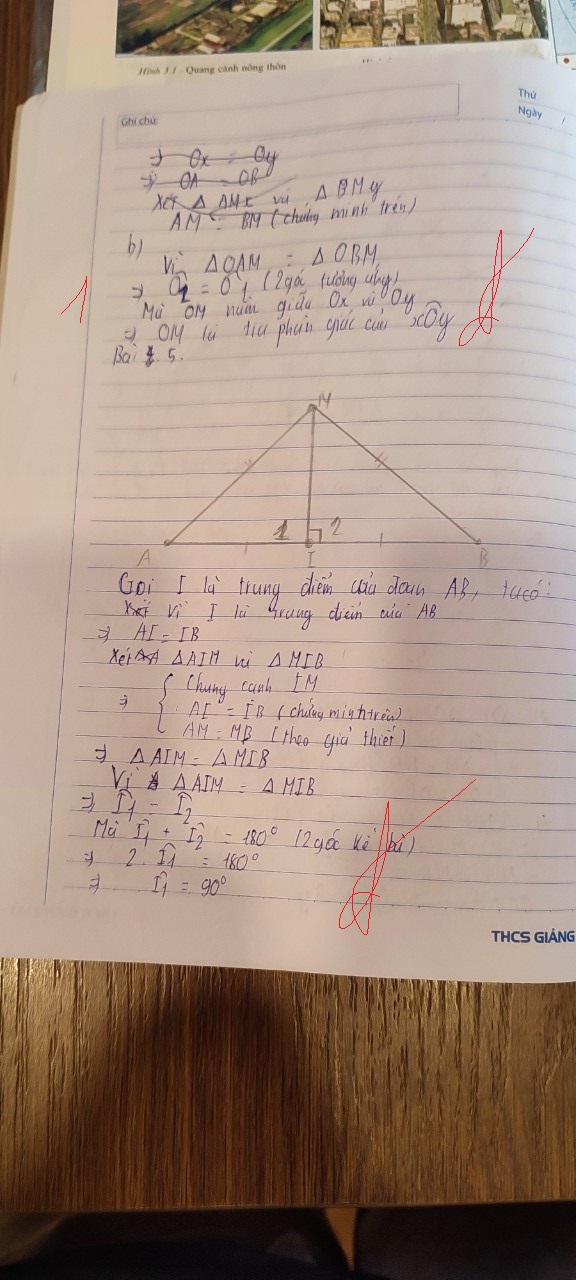 Hình 3.1 - Quang cảnh nông thôn
Ghi chú:
Thứ
Ngày /
=> Ox = Oy
=> OA = OB
Xét Δ AMx và Δ BMy
AM = BM (chứng minh trên)
b)
Vì ΔOAM = ΔOBM
=> Ô2 = Ô1 (2 góc tương ứng)
Mà OM nằm giữa Ox và Oy
=> OM là tia phân giác của xÔy
1
Bài 5.
M
1 2
A I B
Gọi I là trung điểm của đoạn AB, ta có:
Xét vì I là trung điểm của AB
=> AI = IB
Xét ΔAIM và ΔMIB
Chung cạnh IM
=> AI = IB (chứng minh trên)
AM = MB (theo giả thiết)
=> ΔAIM = ΔMIB
Vì ΔAIM = ΔMIB
=> Î1 = Î2
Mà Î1 + Î2 = 180° (2 góc kề bù)
=> 2. Î1 = 180°
=> Î1 = 90°
THCS GIẢNG